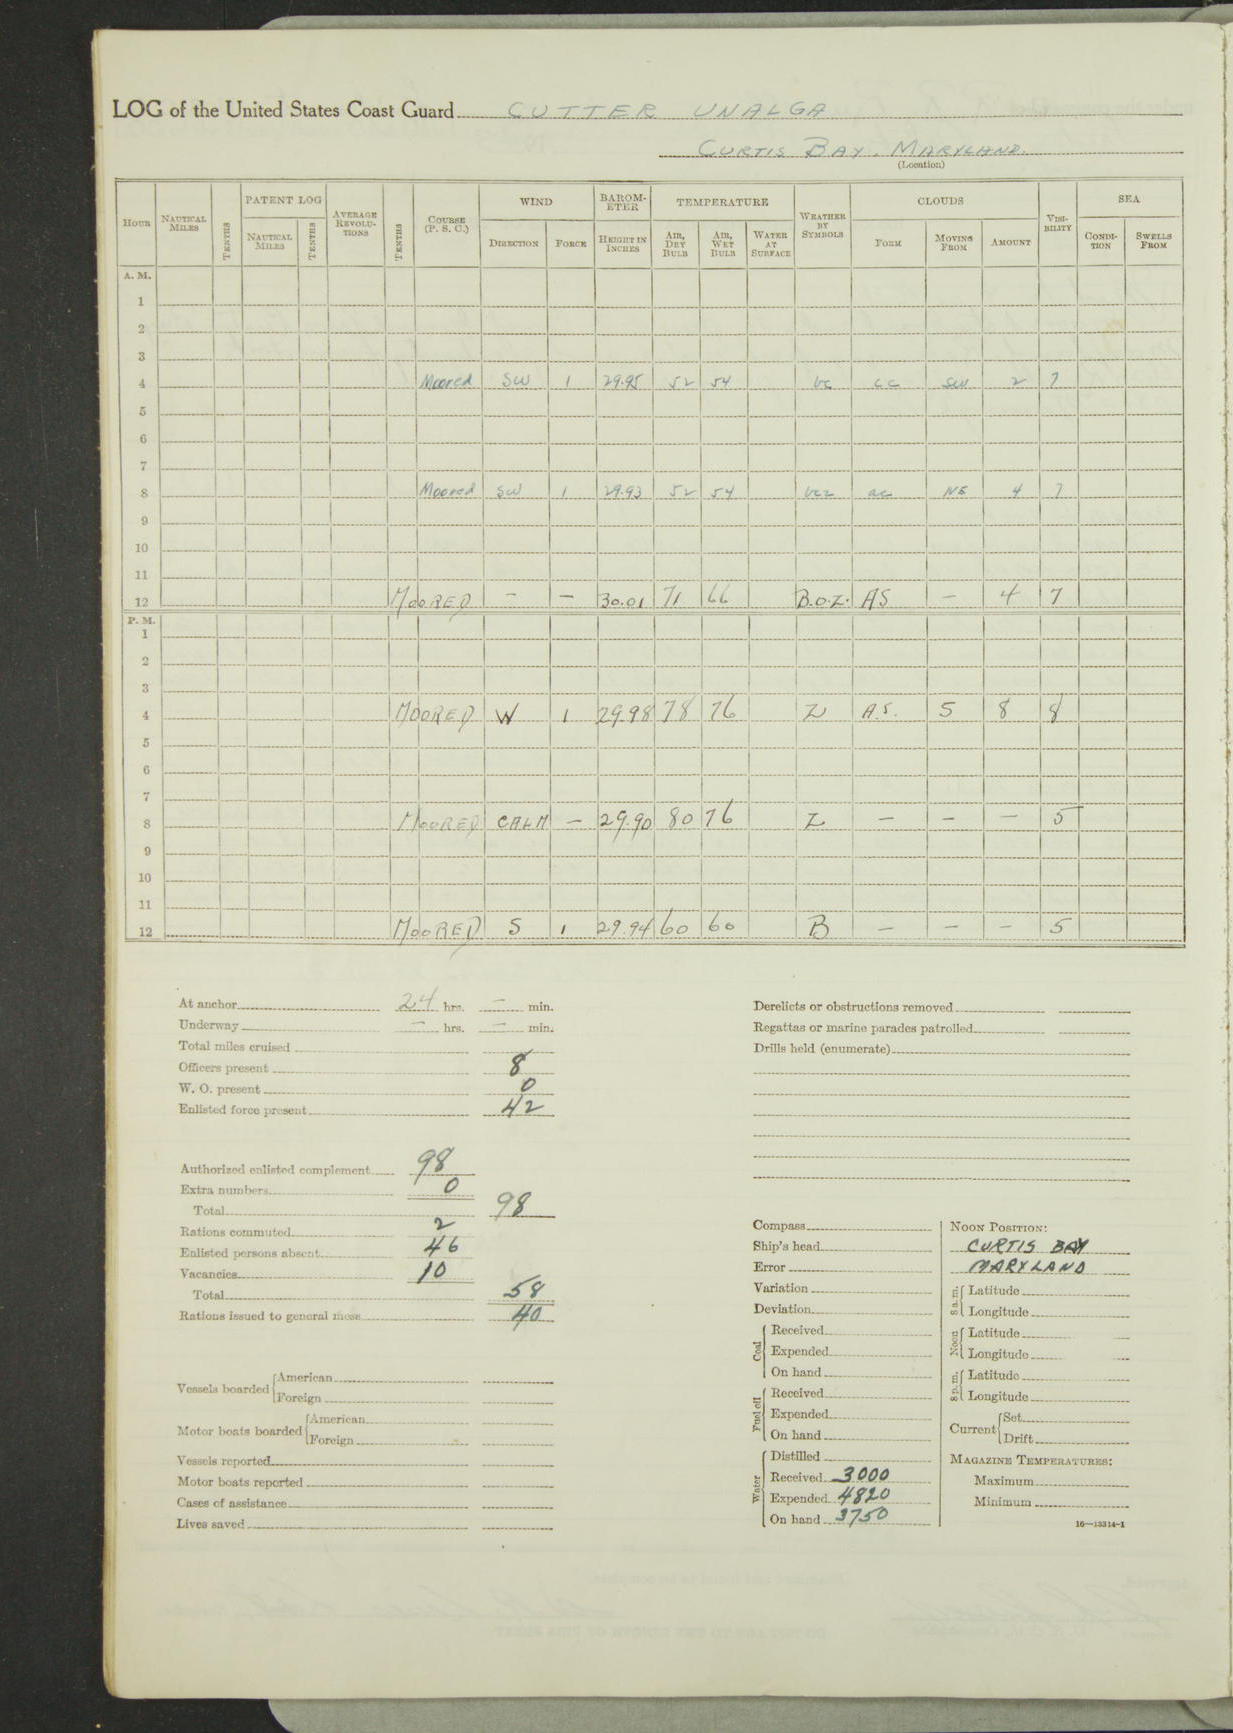 LOG of the United States Coast Guard CUTTER UNALGA
CURTIS BAY, MARYLAND.
(Location)
HOUR NAUTICAL MILES TENTHS PATENT LOG NAUTICAL MILES TENTHS AVERAGE REVOLUTIONS TENTHS COURSE (P. S. C.) WIND DIRECTION FORCE BAROMETER HEIGHT IN INCHES TEMPERATURE AIR, DRY BULB AIR, WET BULB WATER AT SURFACE WEATHER BY SYMBOLS CLOUDS FORM MOVING FROM AMOUNT VISIBILITY SEA CONDITION SWELLS FROM
A. M.
1
2
3
4 Moored SW 1 29.95 52 54 bc cc SW 2 7
5
6
7
8 Moored SW 1 29.93 52 54 bcz ac NE 4 7
9
10
11
12 MOORED – – 30.01 71 66 B.O.Z. AS – 4 7
P. M.
1
2
3
4 MOORED W 1 29.98 78 76 Z A.S. S 8 8
5
6
7
8 MOORED CALM – 29.90 80 76 Z – – – 5
9
10
11
12 MOORED S 1 29.94 60 60 B – – – 5
At anchor 24 hrs. – min.
Underway – hrs. – min.
Total miles cruised
Officers present 8
W. O. present 0
Enlisted force present 42
Authorized enlisted complement 98
Extra numbers 0
Total 98
Rations commuted 2
Enlisted persons absent 46
Vacancies 10
Total 58
Rations issued to general mess 40
Vessels boarded American
Foreign
Motor boats boarded American
Foreign
Vessels reported
Motor boats reported
Cases of assistance
Lives saved
Derelicts or obstructions removed
Regattas or marine parades patrolled
Drills held (enumerate)
Compass
Ship's head
Error
Variation
Deviation
Coal Received
Expended
On hand
Fuel oil Received
Expended
On hand
Water Distilled
Received 3000
Expended 4820
On hand 3750
NOON POSITION:
CURTIS BAY
MARYLAND
8 a.m. Latitude
Longitude
Noon Latitude
Longitude
8 p.m. Latitude
Longitude
Current Set
Drift
MAGAZINE TEMPERATURES:
Maximum
Minimum
16—13314-1